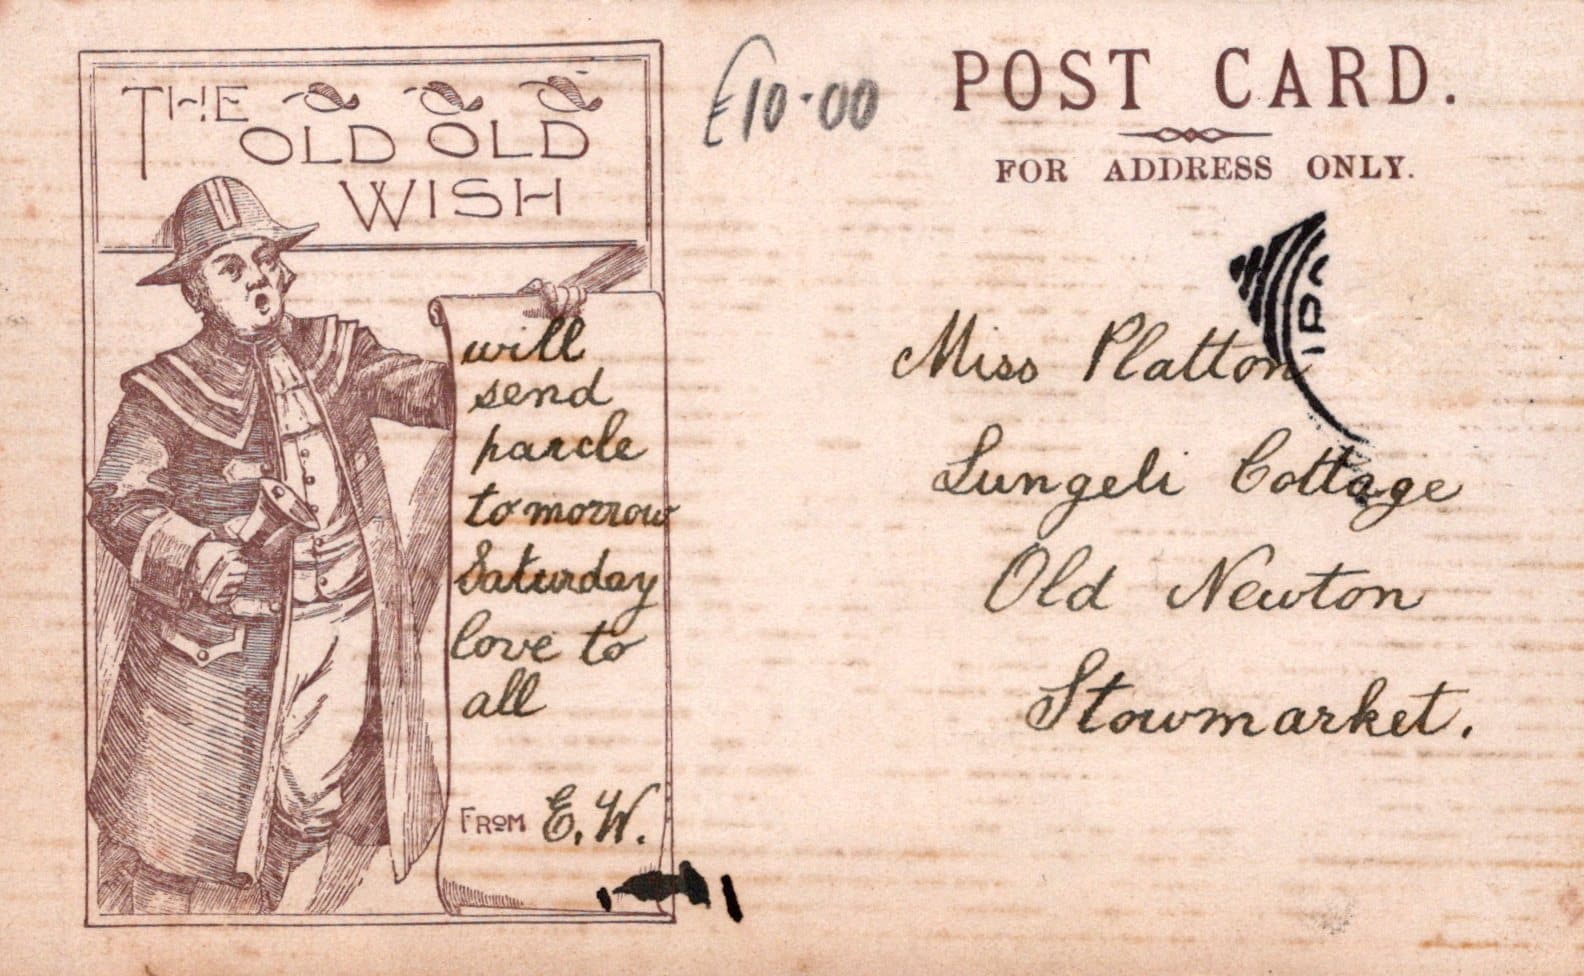 THE
OLD OLD
WISH
will
send
parcle
tomorrow
Saturday
love to
all
FROM E. W.
£10.00
POST CARD.
FOR ADDRESS ONLY.
Miss Platton
Lungeli Cottage
Old Newton
Stowmarket.